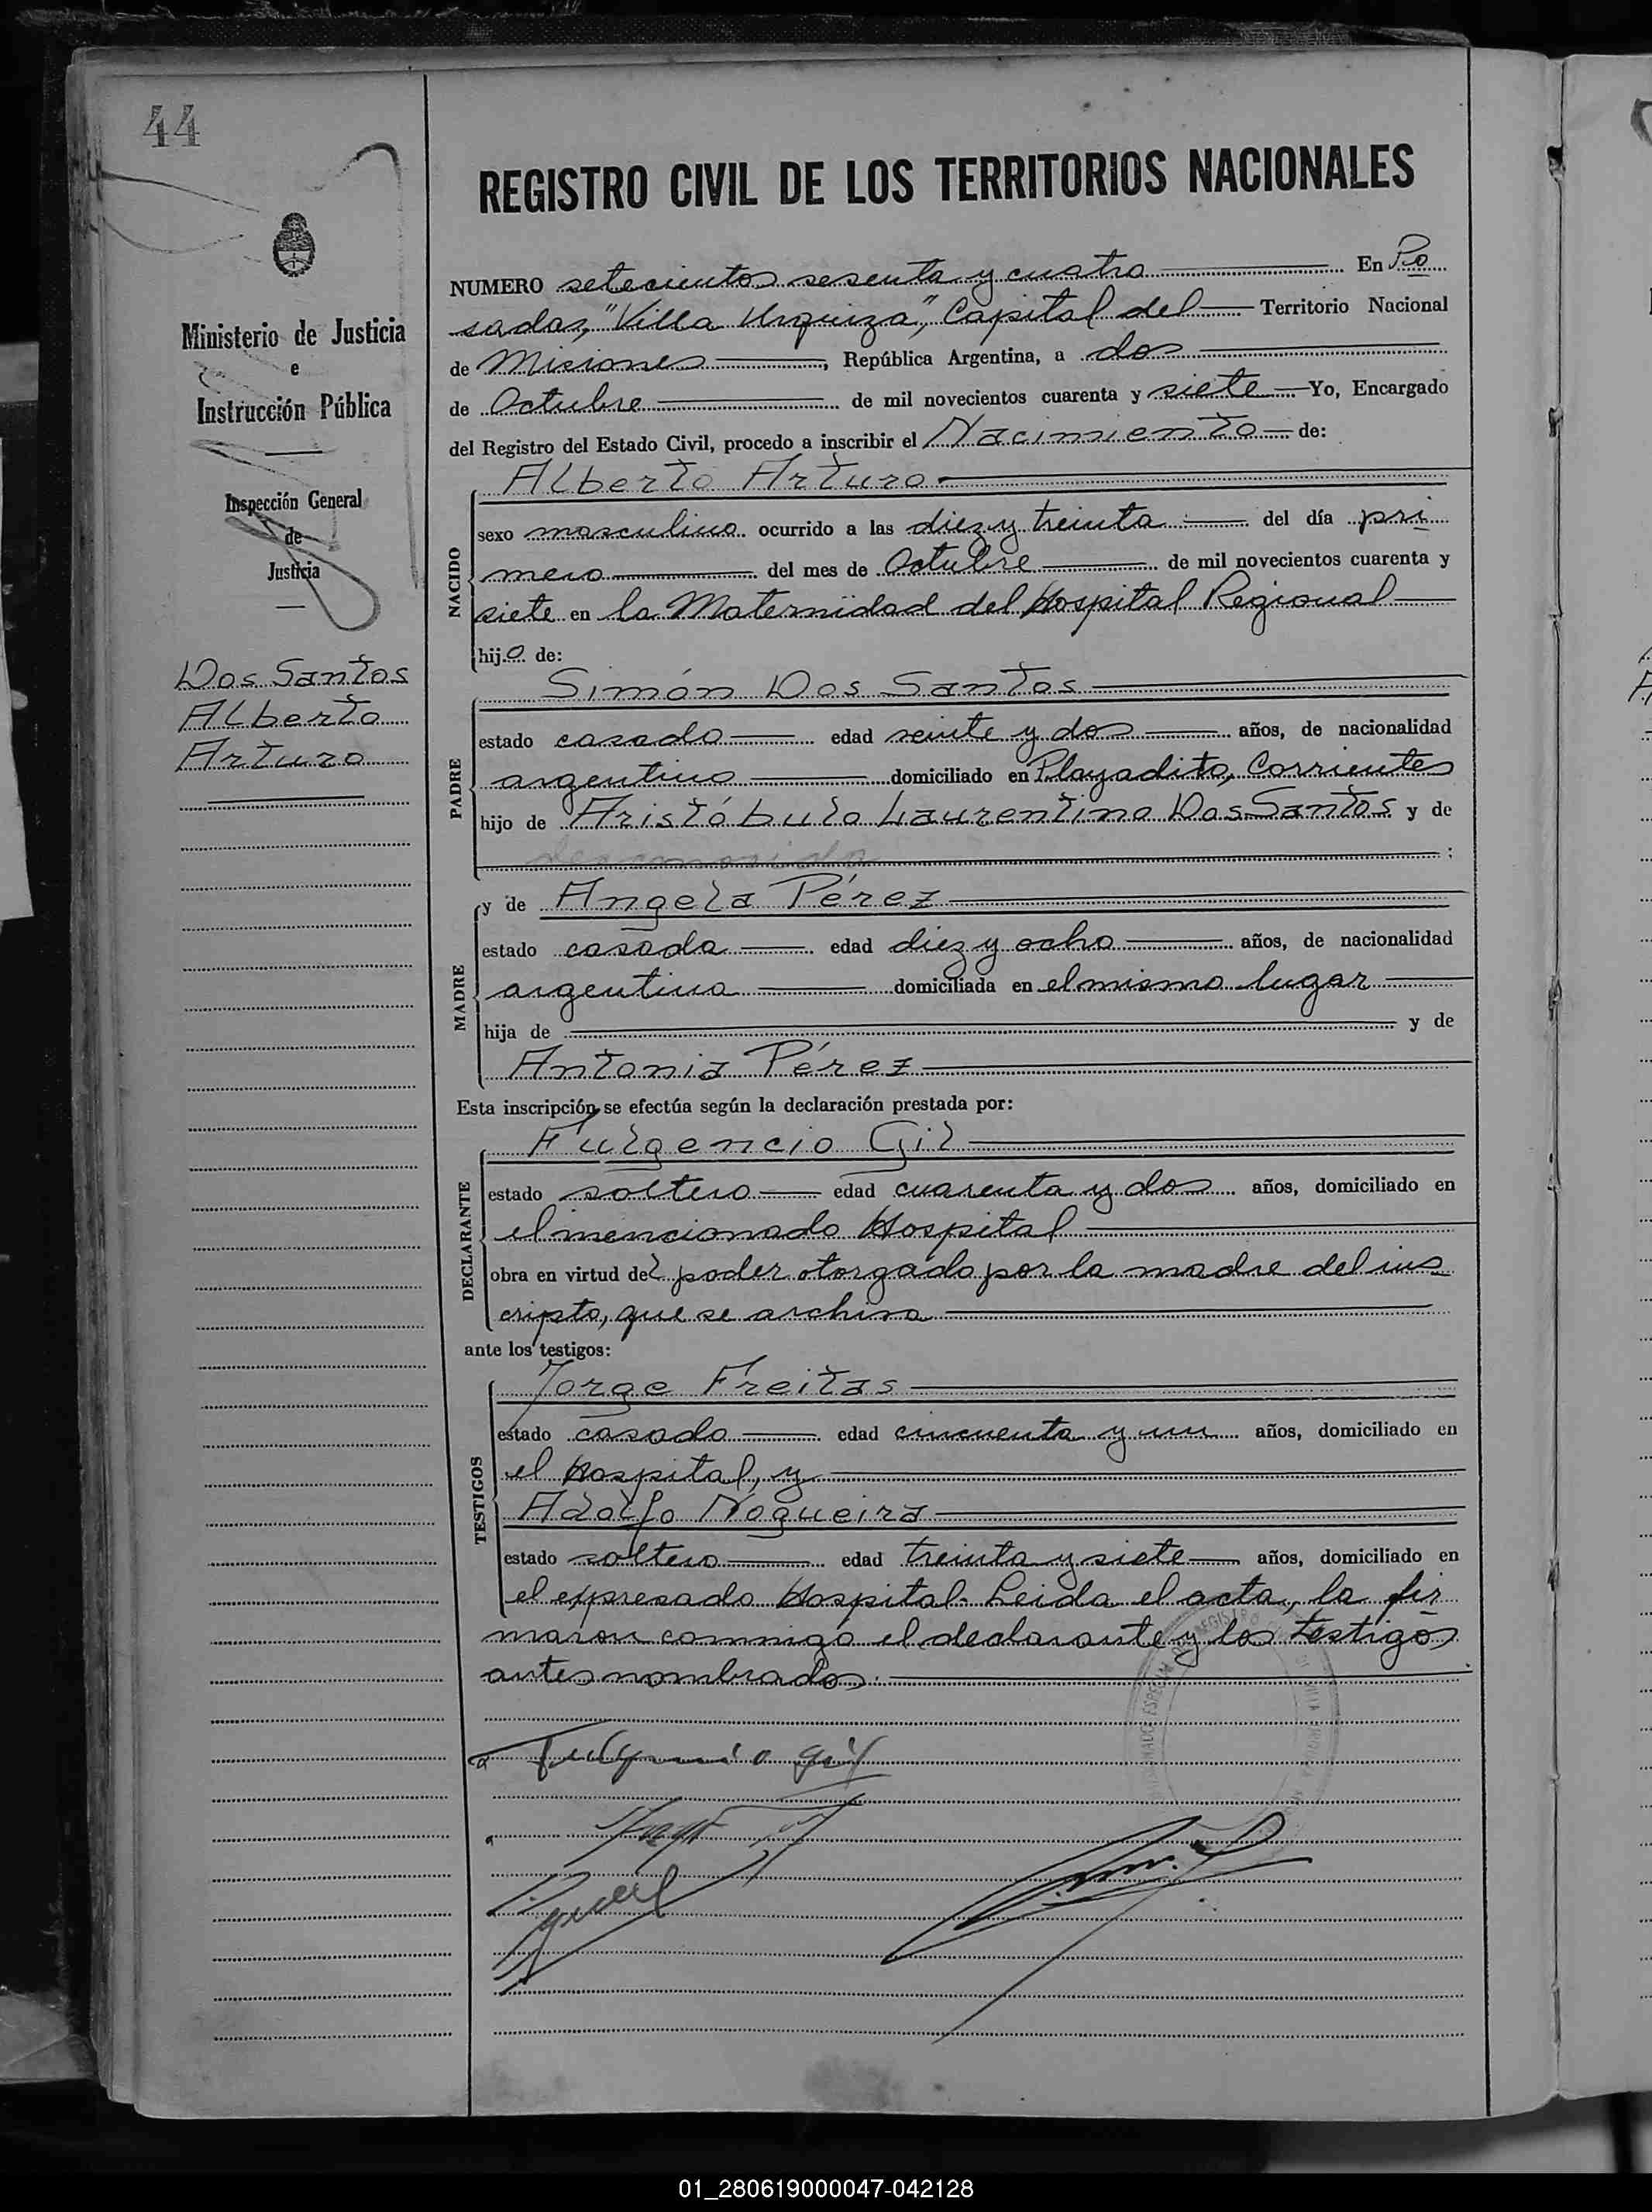 44
REGISTRO CIVIL DE LOS TERRITORIOS NACIONALES
Ministerio de Justicia
e
Instrucción Pública
Inspección General
de
Justicia
Dos Santos
Alberto
Arturo
NUMERO setecientos sesenta y cuatro En Po
sadas, "Villa Urquiza", Capital del Territorio Nacional
de Misiones, República Argentina, a dos
de Octubre de mil novecientos cuarenta y siete Yo, Encargado
del Registro del Estado Civil, procedo a inscribir el Nacimiento de:
NACIDO
Alberto Arturo
sexo masculino ocurrido a las diez y treinta del día pri
mero del mes de Octubre de mil novecientos cuarenta y
siete en la Maternidad del Hospital Regional
hijo de:
PADRE
Simón Dos Santos
estado casado edad veinte y dos años, de nacionalidad
argentino domiciliado en Playadito, Corrientes
hijo de Aristóbulo Laurentino Dos Santos y de
desconocida ;
MADRE
y de Angela Pérez
estado casada edad diez y ocho años, de nacionalidad
argentina domiciliada en el mismo lugar
hija de y de
Antonia Pérez
Esta inscripción se efectúa según la declaración prestada por:
DECLARANTE
Fulgencio Gil
estado soltero edad cuarenta y dos años, domiciliado en
el mencionado Hospital
obra en virtud del poder otorgado por la madre del ins
cripto, que se archiva
ante los testigos:
TESTIGOS
Jorge Freitas
estado casado edad cincuenta y un años, domiciliado en
el Hospital, y
Adolfo Nogueira
estado soltero edad treinta y siete años, domiciliado en
el expresado Hospital. Leida el acta, la fir
maron conmigo el declarante y los testigos
antes nombrados.
Fulgencio Gil
01_280619000047-042128